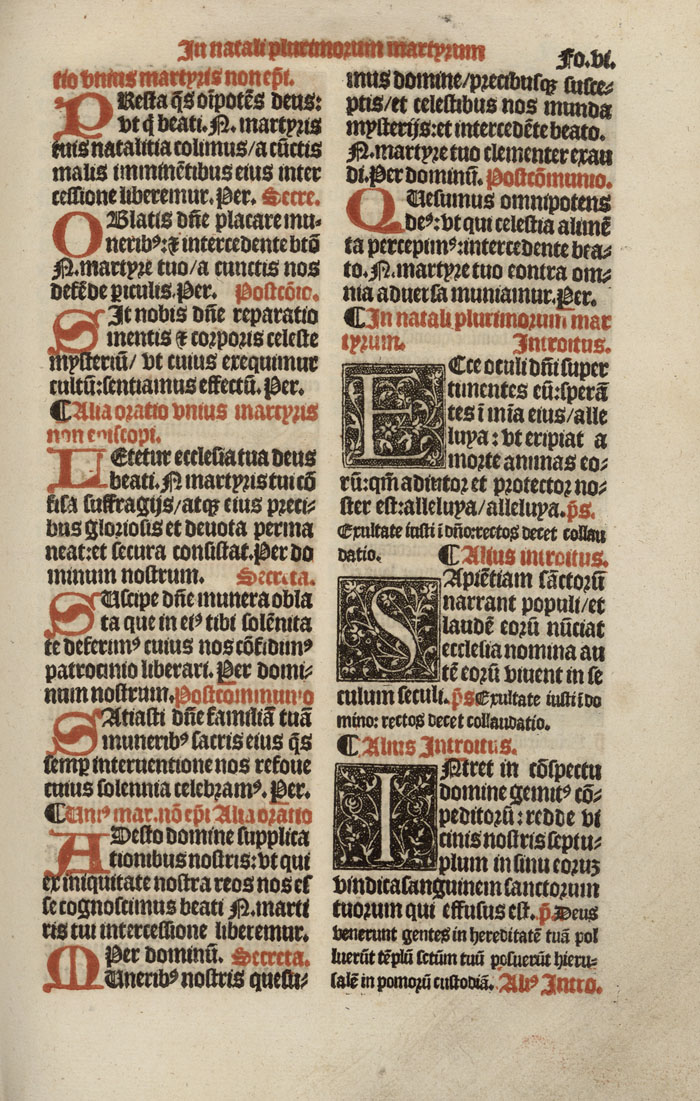 In natali plurimorum martyrum
Fo.vi.
tio vnius martyris non ep̄i.
PResta q̄s oīpotēs deus:
vt q̄ beati. N. martyris
tuis natalitia colimus/a cūctis
malis imminētibus eius inter
cessione liberemur. Per. Secre.
OBlatis dn̄e placare mu-
neribꝰ: ⁊ intercedente btō
N. martyre tuo/a cunctis nos
defēde ꝑiculis. Per. Postcōio.
SIt nobis dn̄e reparatio
mentis ⁊ corporis celeste
mysteriū/ vt cuius exequimur
cultū: sentiamus effectū. Per.
¶ Alia oratio vnius martyris
non episcopi.
LEtetur ecclesia tua deus
beati. N martyris tui cō
fisa suffragijs/atqꝫ eius preci-
bus gloriosis et deuota perma
neat: et secura consistat. Per do
minum nostrum. Secreta.
SUscipe dn̄e munera obla
ta que in eiꝰ tibi solēnita
te deferimꝰ cuius nos cōfidimꝰ
patrocinio liberari. Per domi-
num nostrum. Postcommunio
SAtiasti dn̄e familiā tuā
muneribꝰ sacris eius q̄s
semꝑ interuentione nos refoue
cuius solennia celebramꝰ. Per.
¶ Uniꝰ mar. nō ep̄i Alia oratio
ADesto domine supplica
tionibus nostris: vt qui
ex iniquitate nostra reos nos es
se cognoscimus beati N. marti
ris tui intercessione liberemur.
Per dominū. Secreta.
MUneribꝰ nostris quesu-
mus domine/precibusqꝫ susce-
ptis/et celestibus nos munda
mysterijs: et intercedēte beato.
N. martyre tuo clementer exau
di. Per dominū. Postcōmunio.
QUesumus omnipotens
deꝰ: vt qui celestia alimē
ta percepimꝰ: intercedente bea-
to. N. martyre tuo contra om-
nia aduersa muniamur. Per.
¶ In natali plurimorum mar
tyrum. Introitus.
ECce oculi dn̄i super
timentes eū: sperā
tes ī mīa eius/alle
luya: vt eripiat a
morte animas eo-
rū: qm̄ adiutor et protector no-
ster est: alleluya/alleluya. p̄s.
Exultate iusti ī dn̄o: rectos decet collau
datio. ¶ Alius introitus.
SApiētiam sāctorū
narrant populi/et
laudē eorū nūciat
ecclesia nomina au
tē eorū viuent in se
culum seculi. p̄s Exultate iusti ī do
mino: rectos decet collaudatio.
¶ Alius Introitus.
INtret in cōspectu
domine gemitꝰ cō-
peditorū: redde vi
cinis nostris septu-
plum in sinu eorum
vindica sanguinem sanctorum
tuorum qui effusus est. p̄. Deus
venerunt gentes in hereditatē tuā pol
luerūt tēplū sctūm tuū posuerūt hieru-
salē in pomorū custodiā. Aliꝰ Intro.